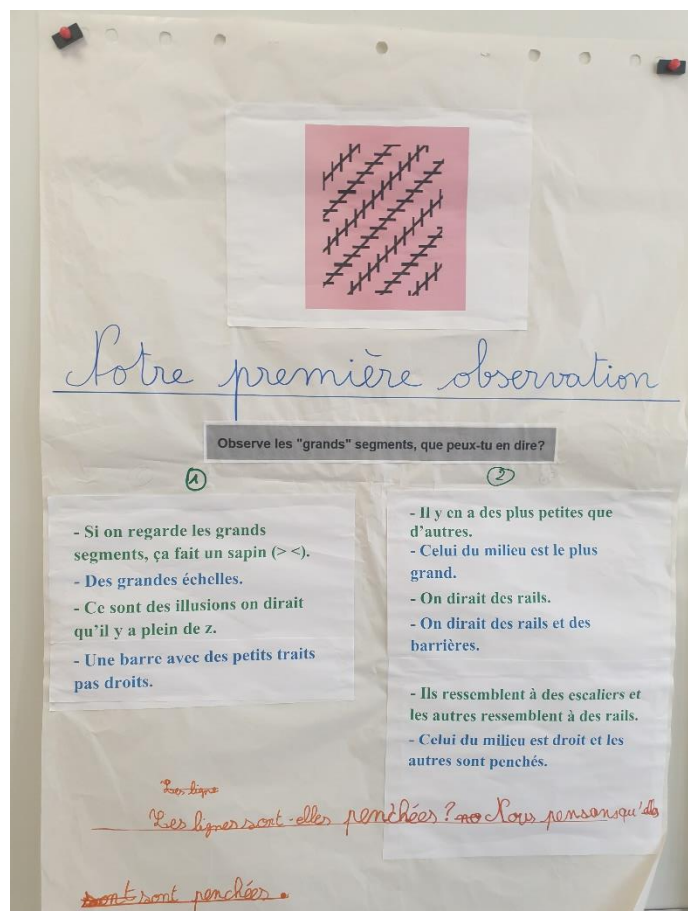 Notre première observation
Observe les "grands" segments, que peux-tu en dire?
1
- Si on regarde les grands
segments, ça fait un sapin (> <).
- Des grandes échelles.
- Ce sont des illusions on dirait
qu'il y a plein de z.
- Une barre avec des petits traits
pas droits.
2
- Il y en a des plus petites que
d'autres.
- Celui du milieu est le plus
grand.
- On dirait des rails.
- On dirait des rails et des
barrières.
- Ils ressemblent à des escaliers et
les autres ressemblent à des rails.
- Celui du milieu est droit et les
autres sont penchés.
Les ligne
Les lignes sont-elles penchées ? Nous pensons qu'elles
sont penchées.